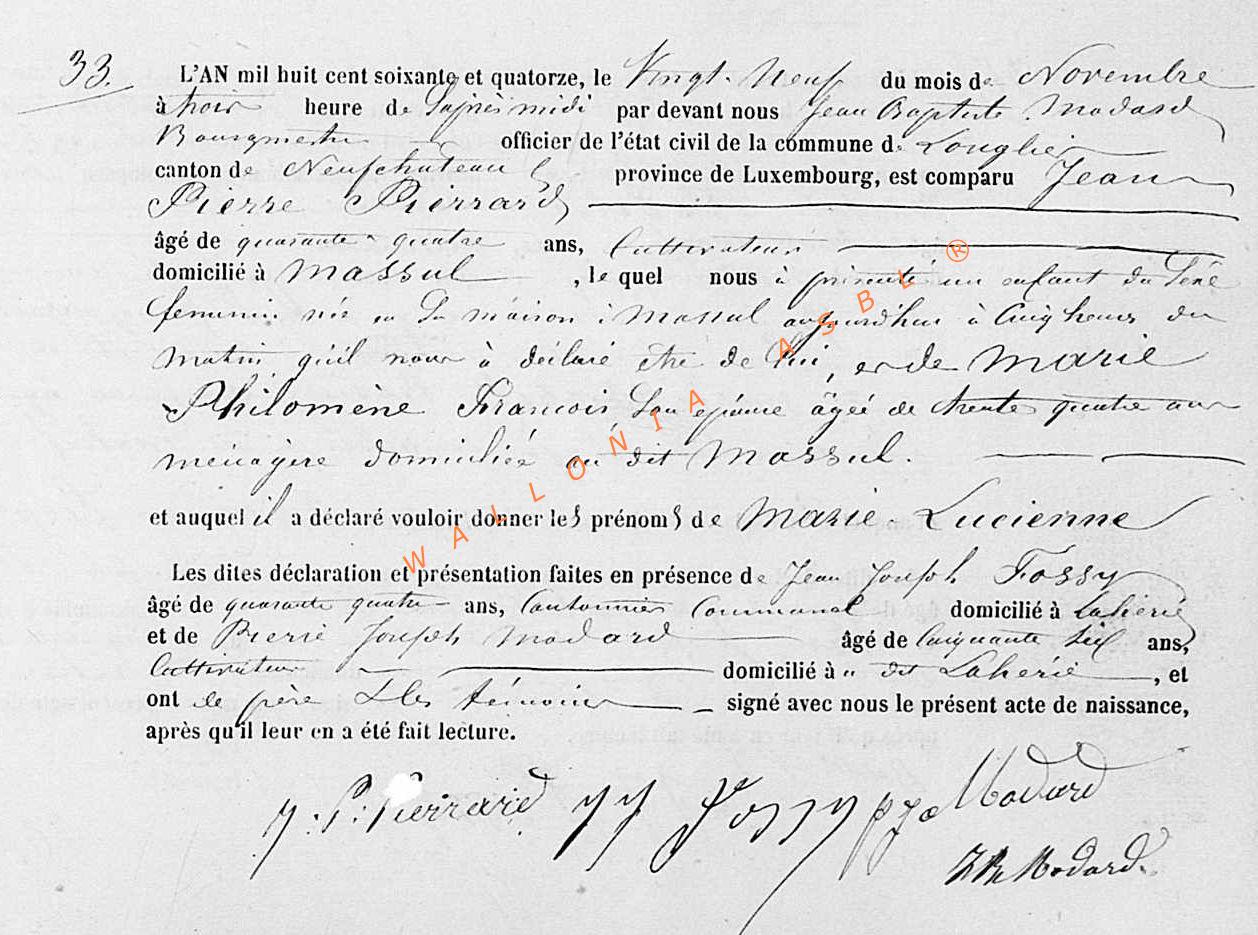 33.
L'AN mil huit cent soixante et quatorze, le Vingt-Neuf du mois de Novembre
à trois heure de l'après midi par devant nous Jean Baptiste Modard
Bourgmestre officier de l'état civil de la commune de Longlier
canton de Neufchateau province de Luxembourg, est comparu Jean
Pierre Pierrard
âgé de quarante-quatre ans, Cultivateur
domicilié à Massul, le quel nous à présenté un enfant du Sexe
féminin née en Sa maison à Massul aujourdhui à Cinq heures du
matin, qu'il nous à déclaré être de Lui, et de Marie
Philomène Francois Son épouse âgée de trente quatre ans
ménagère domiciliée au dit Massul.
et auquel il a déclaré vouloir donner les prénoms de Marie-Lucienne
Les dites déclaration et présentation faites en présence de Jean Joseph Fossy
âgé de quarante quatre ans, Cantonnier Communal domicilié à Laherie
et de Pierre Joseph Modard âgé de Cinquante Six ans,
Cultivateur domicilié à dit Laherie, et
ont de père & les témoins signé avec nous le présent acte de naissance,
après qu'il leur en a été fait lecture.
J: P: Pierrard JJ Fossy PJ Modard
JB Modard
WALLONIA ASBL ®